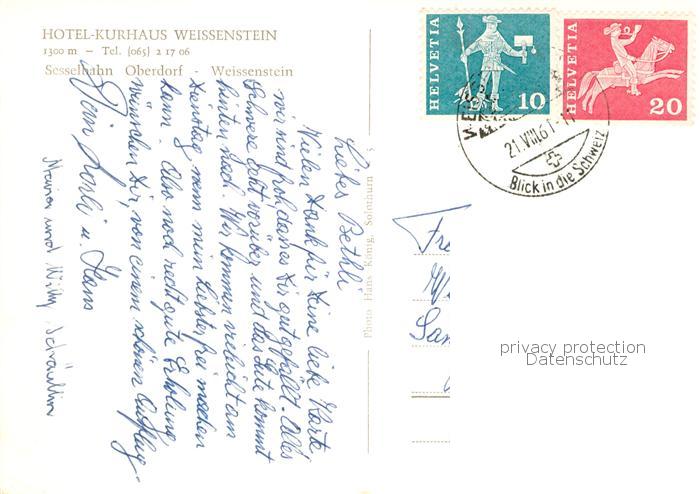 HOTEL-KURHAUS WEISSENSTEIN
1300 m – Tel. (065) 2 17 06
Sesselbahn Oberdorf - Weissenstein
Liebes Bethli
Vielen Dank für Deine liebe Karte,
wir sind froh dass es Dir gut gefällt. Alles
Schwere geht vorüber und das Gute kommt
hinten nach. Wir kommen vielleicht am
Dienstag wenn mein Liebster frei machen
kann. Also noch recht gute Erholung
wünschen Dir, von einem schönen Ausflug
Dein u. Hans
und Willy
Photo Hans König, Solothurn 5
HELVETIA
10
HELVETIA
20
21.VIII.61
Blick in die Schweiz
Fr
San
privacy protection
Datenschutz